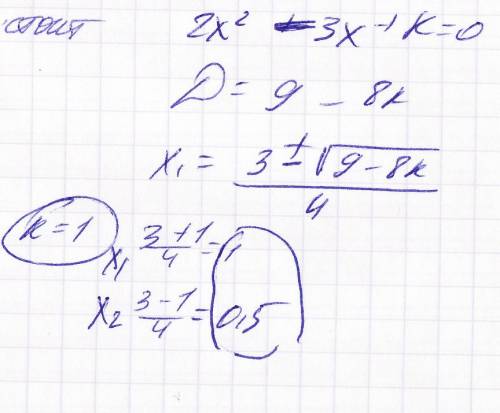 стоит 2x² - 3x + k = 0
D = 9 - 8k
x₁ = (3 ± √(9 - 8k)) / 4
k = 1 x₁ (3 + 1)/4 = 1
x₂ (3 - 1)/4 = 0,5